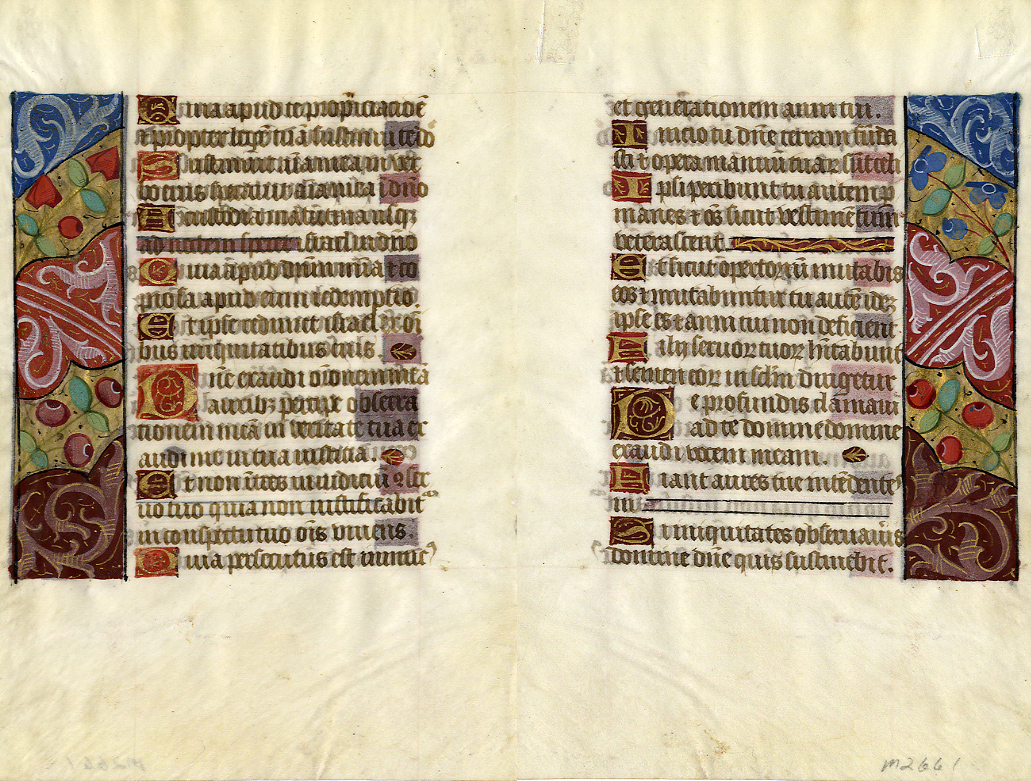 Quia apud te propiciacio ē
⁊ propter legē tuā sustinui te dñe
Sustinuit aīa mea in ver
bo eius speravit aīa mea ī dño
A custodia matutina usqꝫ
ad noctem speret israel in dño
Quia apud dñm mīa ⁊ co
piosa apud eum redemptio.
Et ipse redimet israel ex oī
bus iniquitatibus eius.
Dñe exaudi oīonem meā
auribꝫ percipe obsecra
tionem meā in veritate tua ex
audi me in tua iusticia.
Et non ītres in iudiciū cū ser
uo tuo quia non iustificabit᷑
in conspectu tuo oīs vivens
Quia persecutus est inimic᷒
et generationem anni tui.
Inicio tu dñe terram fūda
sti ⁊ opera manuū tuaꝝ sūt celi
Ipsi peribunt tu autem ꝑ
manes ⁊ oēs sicut vestimētum
veterascent.
Et sicut opertoriū mutabis
eos ⁊ mutabuntur tu autē idē
ipse es ⁊ anni tui non deficient
Filij seruoꝝ tuoꝝ hītabunt
⁊ semen eoꝝ in sclm dirigetur
De profundis clamaui
ad te domine domine
exaudi vocem meam.
Fiant aures tue intēdente᷒
in
Si iniquitates obseruaueris
domine dñe quis sustinebit.
M2661